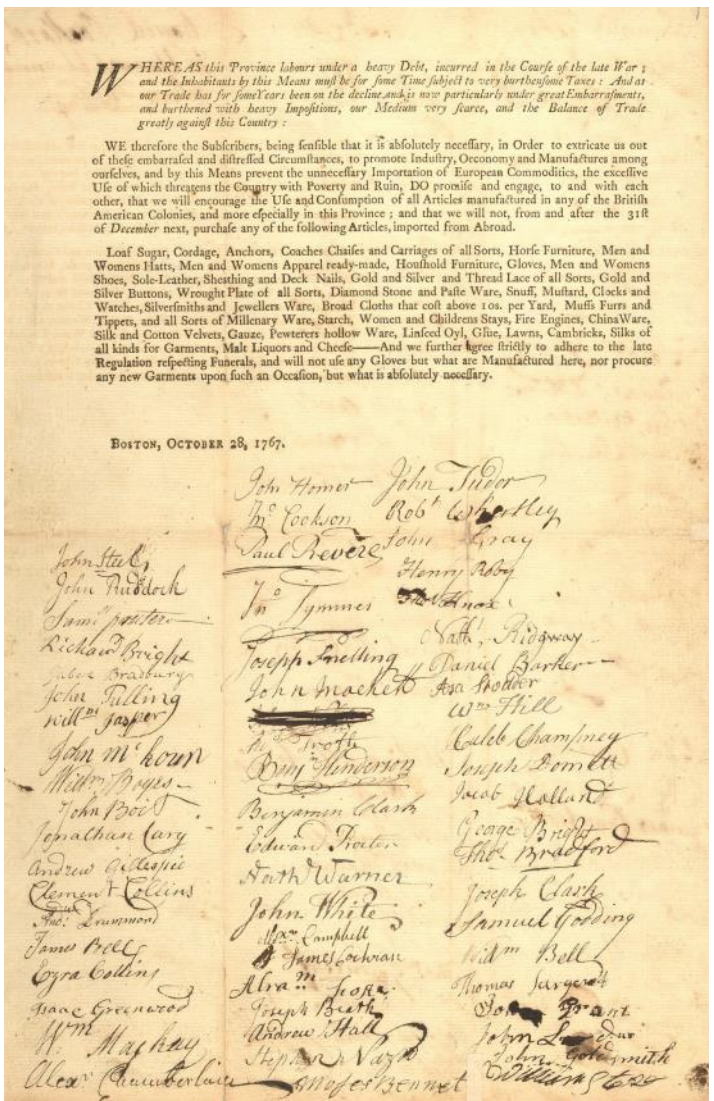 WHEREAS this Province labours under a heavy Debt, incurred in the Courſe of the late War ;
and the Inhabitants by this Means muſt be for ſome Time ſubject to very burthenſome Taxes : And as
our Trade has for ſome Years been on the decline, and is now particularly under great Embarraſments,
and burthened with heavy Impoſitions, our Medium very ſcarce, and the Balance of Trade
greatly againſt this Country :
WE therefore the Subſcribers, being ſenſible that it is abſolutely neceſſary, in Order to extricate us out
of theſe embarraſed and diſtreſſed Circumſtances, to promote Induſtry, Oeconomy and Manufactures among
ourſelves, and by this Means prevent the unneceſſary Importation of European Commodities, the exceſſive
Uſe of which threatens the Country with Poverty and Ruin, DO promiſe and engage, to and with each
other, that we will encourage the Uſe and Conſumption of all Articles manufactured in any of the Britiſh
American Colonies, and more eſpecially in this Province ; and that we will not, from and after the 31ſt
of December next, purchaſe any of the following Articles, imported from Abroad.
Loaf Sugar, Cordage, Anchors, Coaches Chaiſes and Carriages of all Sorts, Horſe Furniture, Men and
Womens Hatts, Men and Womens Apparel ready-made, Houſhold Furniture, Gloves, Men and Womens
Shoes, Sole-Leather, Sheathing and Deck Nails, Gold and Silver and Thread Lace of all Sorts, Gold and
Silver Buttons, Wrought Plate of all Sorts, Diamond Stone and Paſte Ware, Snuff, Muſtard, Clocks and
Watches, Silverſmiths and Jewellers Ware, Broad Cloths that coſt above 10s. per Yard, Muffs Furrs and
Tippets, and all Sorts of Millenary Ware, Starch, Women and Childrens Stays, Fire Engines, China Ware,
Silk and Cotton Velvets, Gauze, Pewterers hollow Ware, Linſeed Oyl, Glue, Lawns, Cambricks, Silks of
all kinds for Garments, Malt Liquors and Cheeſe——And we further agree ſtrictly to adhere to the late
Regulation reſpecting Funerals, and will not uſe any Gloves but what are Manufactured here, nor procure
any new Garments upon ſuch an Occaſion, but what is abſolutely neceſſary.
BOSTON, OCTOBER 28, 1767.
John Steel
John Ruddock
Richard Bright
Jabez Bradbury
John Fulling
Willm Jasper
John McLean
Willm Boyes
John Boit
Jonathan Cary
Andrew Gillespie
Clement Collins
Drummond
James Bell
Ezra Collins
Isaac Greenwood
Wm Mackay
Alexr Chamberlain
John Homer
Jno Cookson
Paul Revere
Jno Tymmes
Joseph Snelling
John Mackett
Trott
Benjn Henderson
Benjamin Clark
Edward Procter
Nath Warner
John White
Campbell
James Cochran
Joseph Beath
Andrew Hall
Stephen
Moses Bennet
John Tudor
Robt Whertley
John Gray
Henry Roby
Knox
Nathl Ridgway
Daniel Barker
Asa Stodder
Wm Hill
Caleb Champney
Joseph Domett
Jacob Holland
George Bright
Thos Bradford
Joseph Clark
Samuel Gooding
Willm Bell
Thomas
Grant
John
John Goldsmith
William